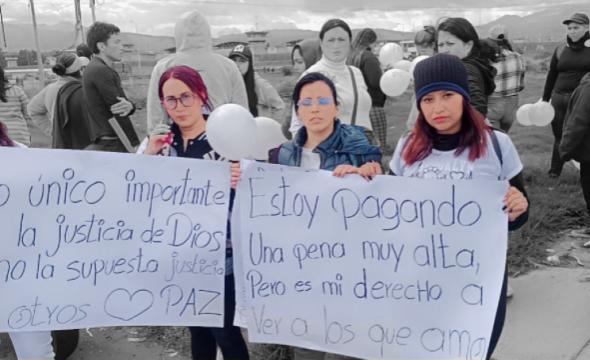 o único importante
la justicia de Dios
no la supuesta justicia
otros ♡ PAZ
Estoy pagando
Una pena muy alta,
Pero es mi derecho a
Ver a los que ama